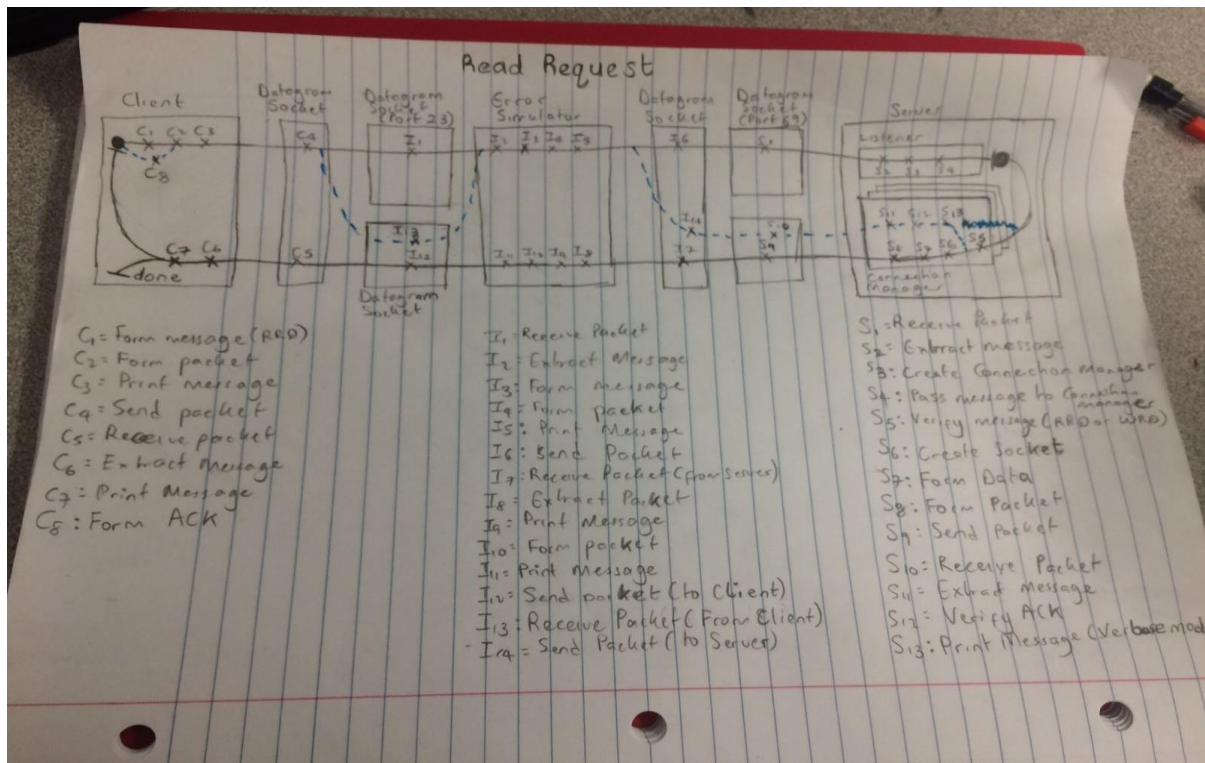 Read Request
Client
Datagram Socket
Datagram Socket (Port 23)
Error Simulator
Datagram Socket
Datagram Socket (Port 69)
Server
Listener
C1 C2 C3
C8
C4
I1
I2 I3 I4 I5
I6
S1
S2 S3 S4
C7 C6
C5
I13
I12
I11 I10 I9 I8
I14
I7
S10
S9
S11 S12 S13
S8 S7 S6 S5
done
Datagram Socket
Connection Manager
C1= Form message (RRQ)
C2= Form packet
C3= Print message
C4= Send packet
C5= Receive packet
C6= Extract Message
C7= Print Message
C8: Form ACK
I1= Receive Packet
I2= Extract Message
I3: Form message
I4= Form packet
I5: Print Message
I6: Send Packet
I7: Receive Packet (from Server)
I8= Extract Packet
I9= Print Message
I10= Form packet
I11= Print Message
I12= Send packet (to Client)
I13: Receive Packet (From Client)
I14= Send Packet (to Server)
S1=Receive Packet
S2= Extract message
S3: Create Connection Manager
S4: Pass message to Connection manager
S5: Verify message (RRQ or WRQ)
S6: Create Socket
S7: Form Data
S8: Form Packet
S9: Send Packet
S10: Receive Packet
S11= Extract Message
S12= Verify ACK
S13: Print Message (Verbose mod